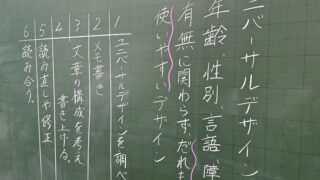 ユニバーサルデザイン
年齢、性別、言語、障
有無に関わらず、だれも
使いやすいデザイン
1 ユニバーサルデザインを調べ
2 メモ書き
3 文章の構成を考え
4 書き上げる。
5 読み直しや修正
6 読み合い。